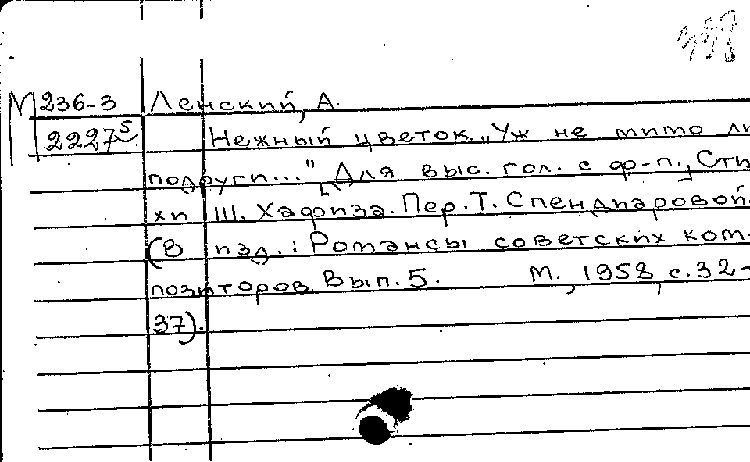 338
М 236-3 Ленский, А.
2227⁵ Нежный цветок. „Уж не тито ли
подруги..." [Для выс. гол. с ф-п., Сти-
хи Ш. Хафиза. Пер. Т. Спендиаровой.
(В изд.: Романсы советских ком-
позиторов Вып. 5. М., 1958, с. 32-
37).